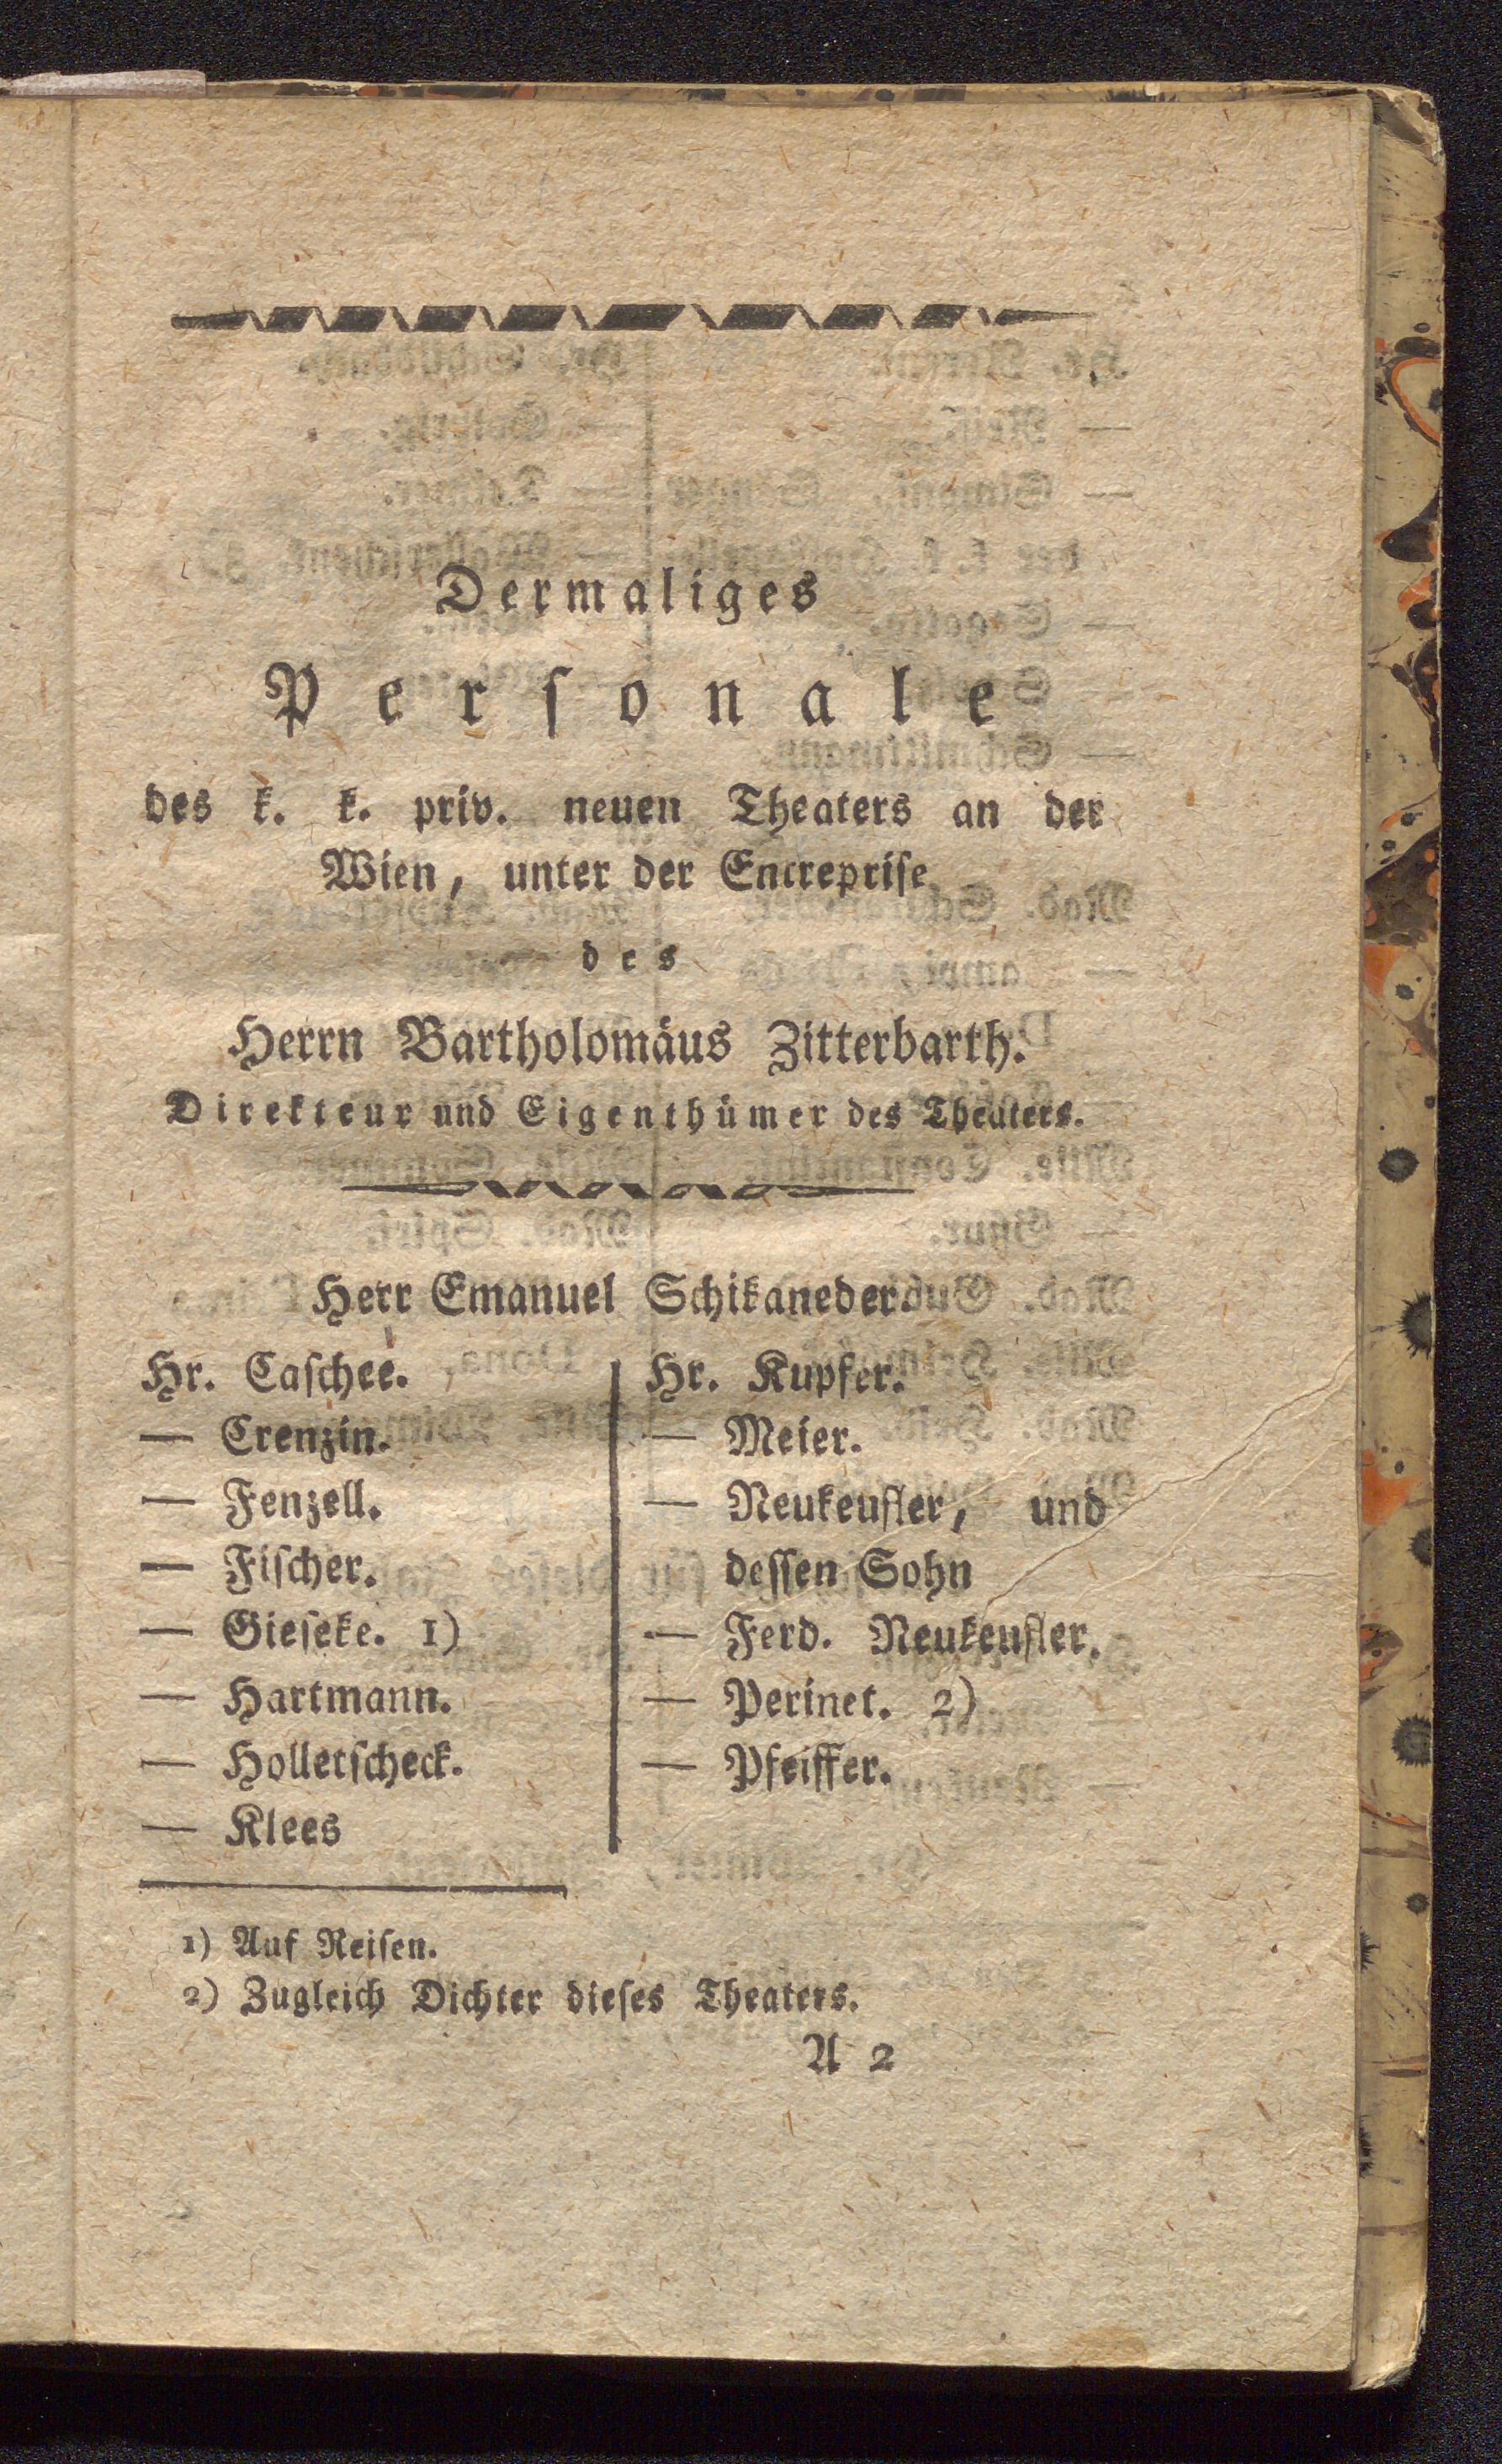 Dermaliges
Perſonale
des k. k. priv. neuen Theaters an der
Wien, unter der Entrepriſe
des
Herrn Bartholomäus Zitterbarth.
Direkteur und Eigenthümer des Theaters.
Herr Emanuel Schikaneder.
Hr. Caſchee.
— Crenzin.
— Fenzell.
— Fiſcher.
— Gieſeke. 1)
— Hartmann.
— Holletſcheck.
— Klees
Hr. Kupfer.
— Meier.
— Neukeufler, und
deſſen Sohn
— Ferd. Neukeufler.
— Perinet. 2)
— Pfeiffer.
1) Auf Reiſen.
2) Zugleich Dichter dieſes Theaters.
A 2